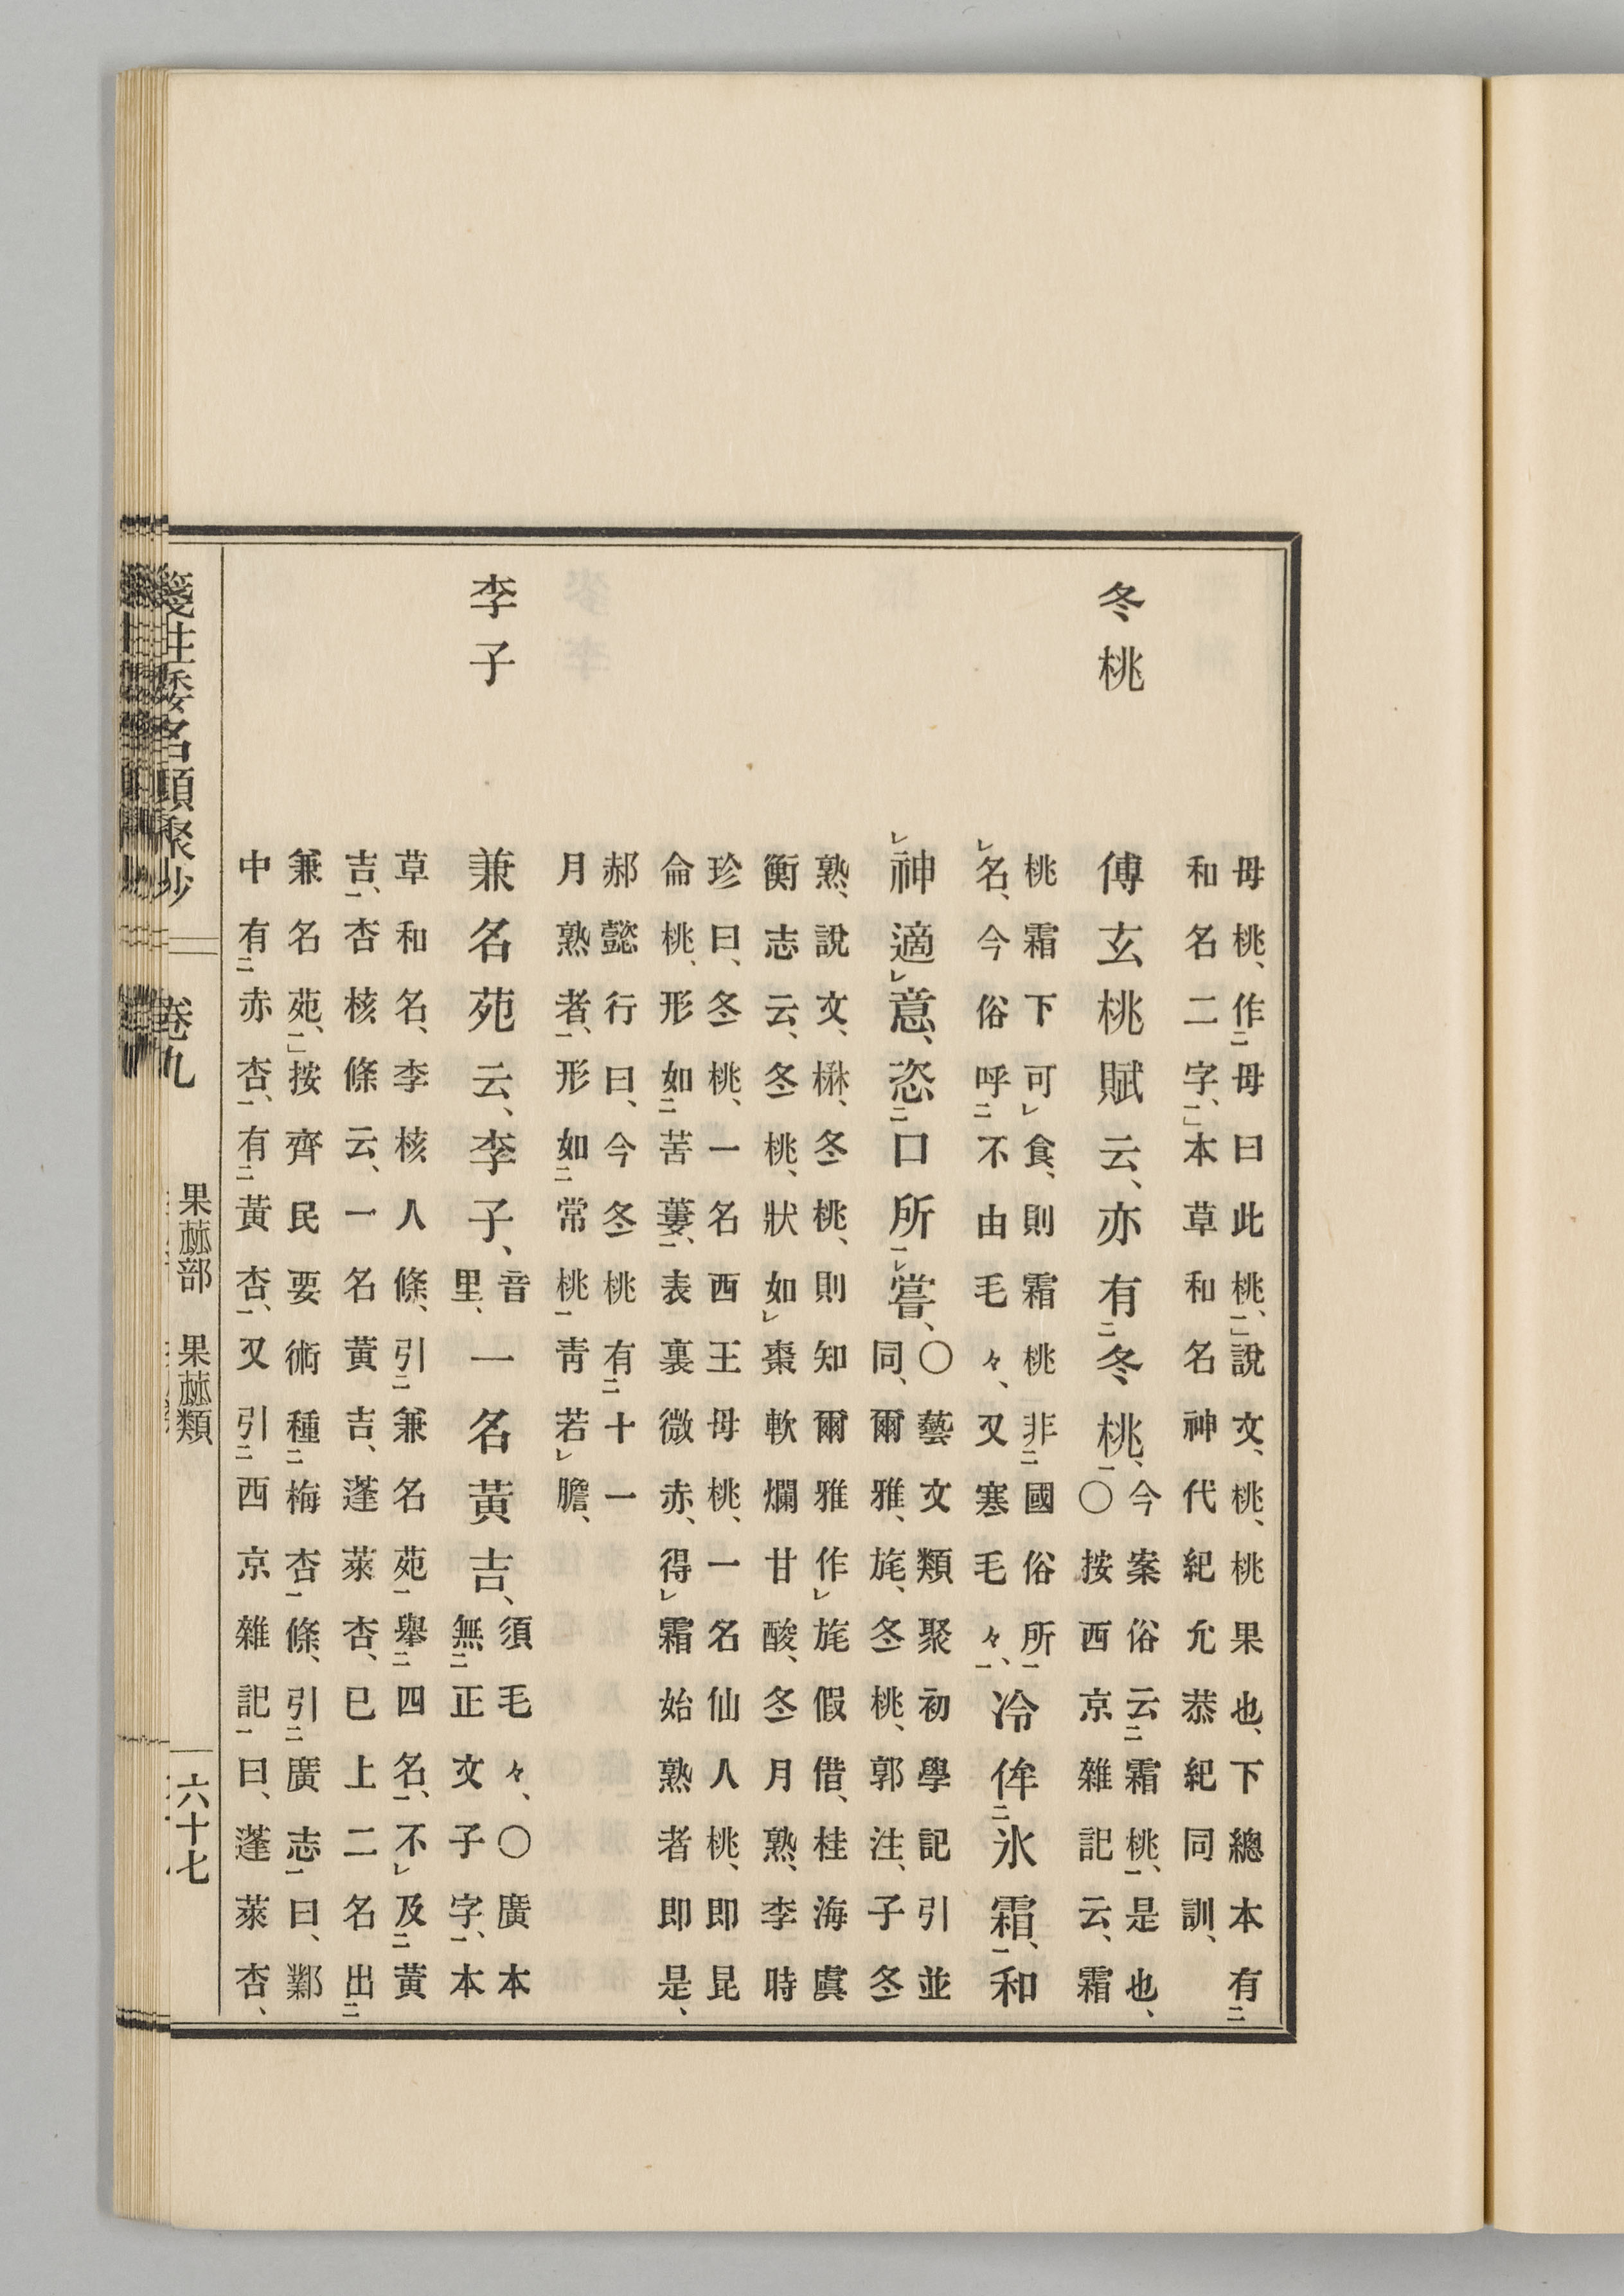 母桃、作二母曰此桃、二」說文、桃、桃果也、下總本有二
和名二字、二」本草和名神代紀允恭紀同訓、
冬桃
傅玄桃賦云、亦有二冬桃一、
今案俗云二霜桃一、是也、
〇按西京雜記云、霜
桃霜下可レ食、則霜桃非二國俗所一
レ名、今俗呼二不由毛々、又寒毛々、一
冷侔二氷霜、一和
レ神適レ意、恣二口所一レ嘗、
〇藝文類聚初學記引並
同、爾雅、旄、冬桃、郭注、子冬
熟、說文、楙、冬桃、則知爾雅作レ旄假借、桂海虞
衡志云、冬桃、狀如レ棗軟爛甘酸、冬月熟、李時
珍曰、冬桃、一名西王母桃、一名仙人桃、即昆
侖桃、形如二苦蔞、一表裏微赤、得レ霜始熟者即是、
郝懿行曰、今冬桃有二十一
月熟者、一形如二常桃一靑若レ膽、
李子
兼名苑云、李子、
音
里、
一名黃吉、
須毛々、〇廣本
無二正文子字、一本
草和名、李核人條、引二兼名苑一舉二四名、一不レ及二黃
吉、一杏核條云、一名黃吉、蓬萊杏、已上二名出二
兼名苑、二」按齊民要術種二梅杏一條、引二廣志一曰、鄴
中有二赤杏、一有二黃杏、一又引二西京雜記一曰、蓬萊杏、
箋注倭名類聚抄　卷九　果蓏部　果蓏類　六十七